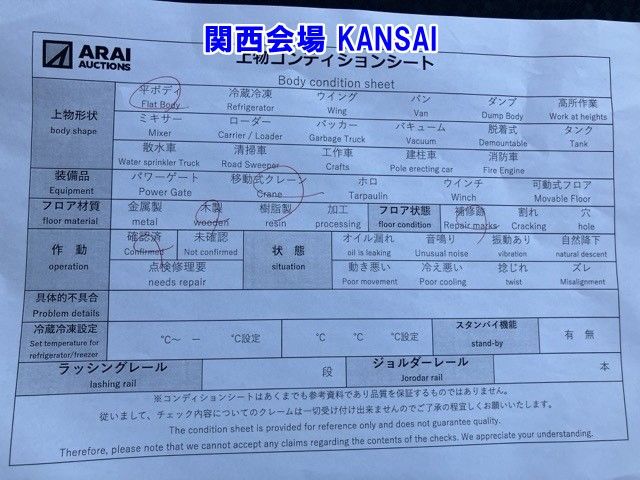 関西会場 KANSAI
ARAI
AUCTIONS
上物コンディションシート
Body condition sheet
上物形状
body shape
平ボディ 冷蔵冷凍 ウイング バン ダンプ 高所作業
Flat Body Refrigerator Wing Van Dump Body Work at heights
ミキサー ローダー パッカー バキューム 脱着式 タンク
Mixer Carrier / Loader Garbage Truck Vacuum Demountable Tank
散水車 清掃車 工作車 建柱車 消防車
Water sprinkler Truck Road Sweeper Crafts Pole erecting car Fire Engine
装備品 パワーゲート 移動式クレーン ホロ ウインチ 可動式フロア
Equipment Power Gate Crane Tarpaulin Winch Movable Floor
フロア材質 金属製 木製 樹脂製 加工 フロア状態 補修跡 割れ 穴
floor material metal wooden resin processing floor condition Repair marks Cracking hole
作 動
operation
確認済 未確認
Confirmed Not confirmed
点検修理要
needs repair
状 態
situation
オイル漏れ 音鳴り 振動あり 自然降下
oil is leaking Unusual noise vibration natural descent
動き悪い 冷え悪い 捻じれ ズレ
Poor movement Poor cooling twist Misalignment
具体的不具合
Problem details
冷蔵冷凍設定
Set temperature for
refrigerator/freezer
℃～ － ℃設定 ℃ ℃ ℃設定
スタンバイ機能
stand-by
有 無
ラッシングレール 段 ジョルダーレール 本
lashing rail Jorodar rail
※コンディションシートはあくまでも参考資料であり品質を保証するものではありません。
従いまして、チェック内容についてのクレームは一切受け付け出来ませんのでご了承の程宜しくお願いいたします。
The condition sheet is provided for reference only and does not guarantee quality.
Therefore, please note that we cannot accept any claims regarding the contents of the checks. We appreciate your understanding.